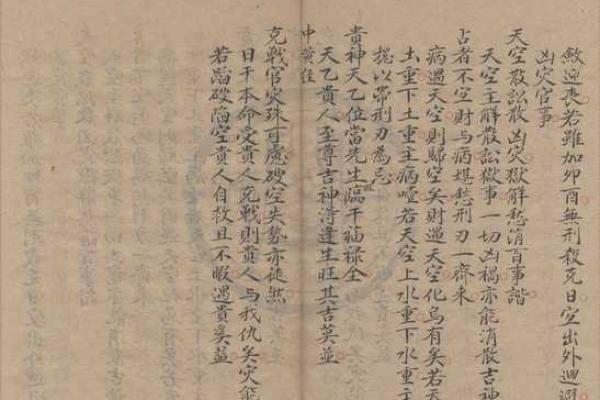 煞迎喪若雖加卯酉無刑殺克日空出外迴避
凶灾官事
天空散訟散凶灾獄解愁消百事諧
天空主解散訟獄事一切凶禍亦能消散吉神
占者不宜財与病堪愁刑刃一齊来
病遇天空則歸空矣財遇天空化烏有矣若天
土重下土重主病噎若天空上水重下水重主
提以帶刑刃為忌
貴神天乙位當先生臨干福禄全
天乙貴人至尊吉神得逢生旺其吉莫並
中黄经
克戰官灾殊可慮破空失勢亦徒然
日干本命受貴人克戰則貴人与我仇矣灾能
若蹈破陷空貴人自救且不暇遇貴奚益